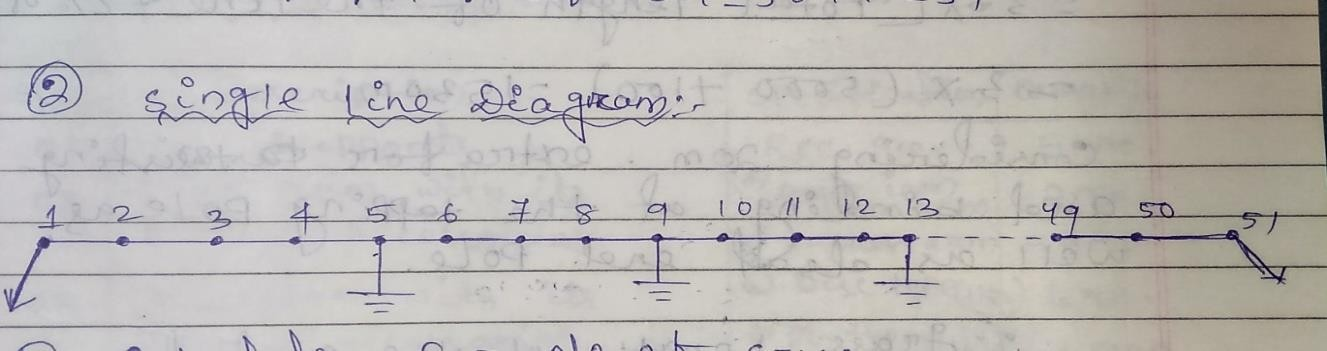 ② Single line Diagram:-
1 2 3 4 5 6 7 8 9 10 11 12 13 49 50 51